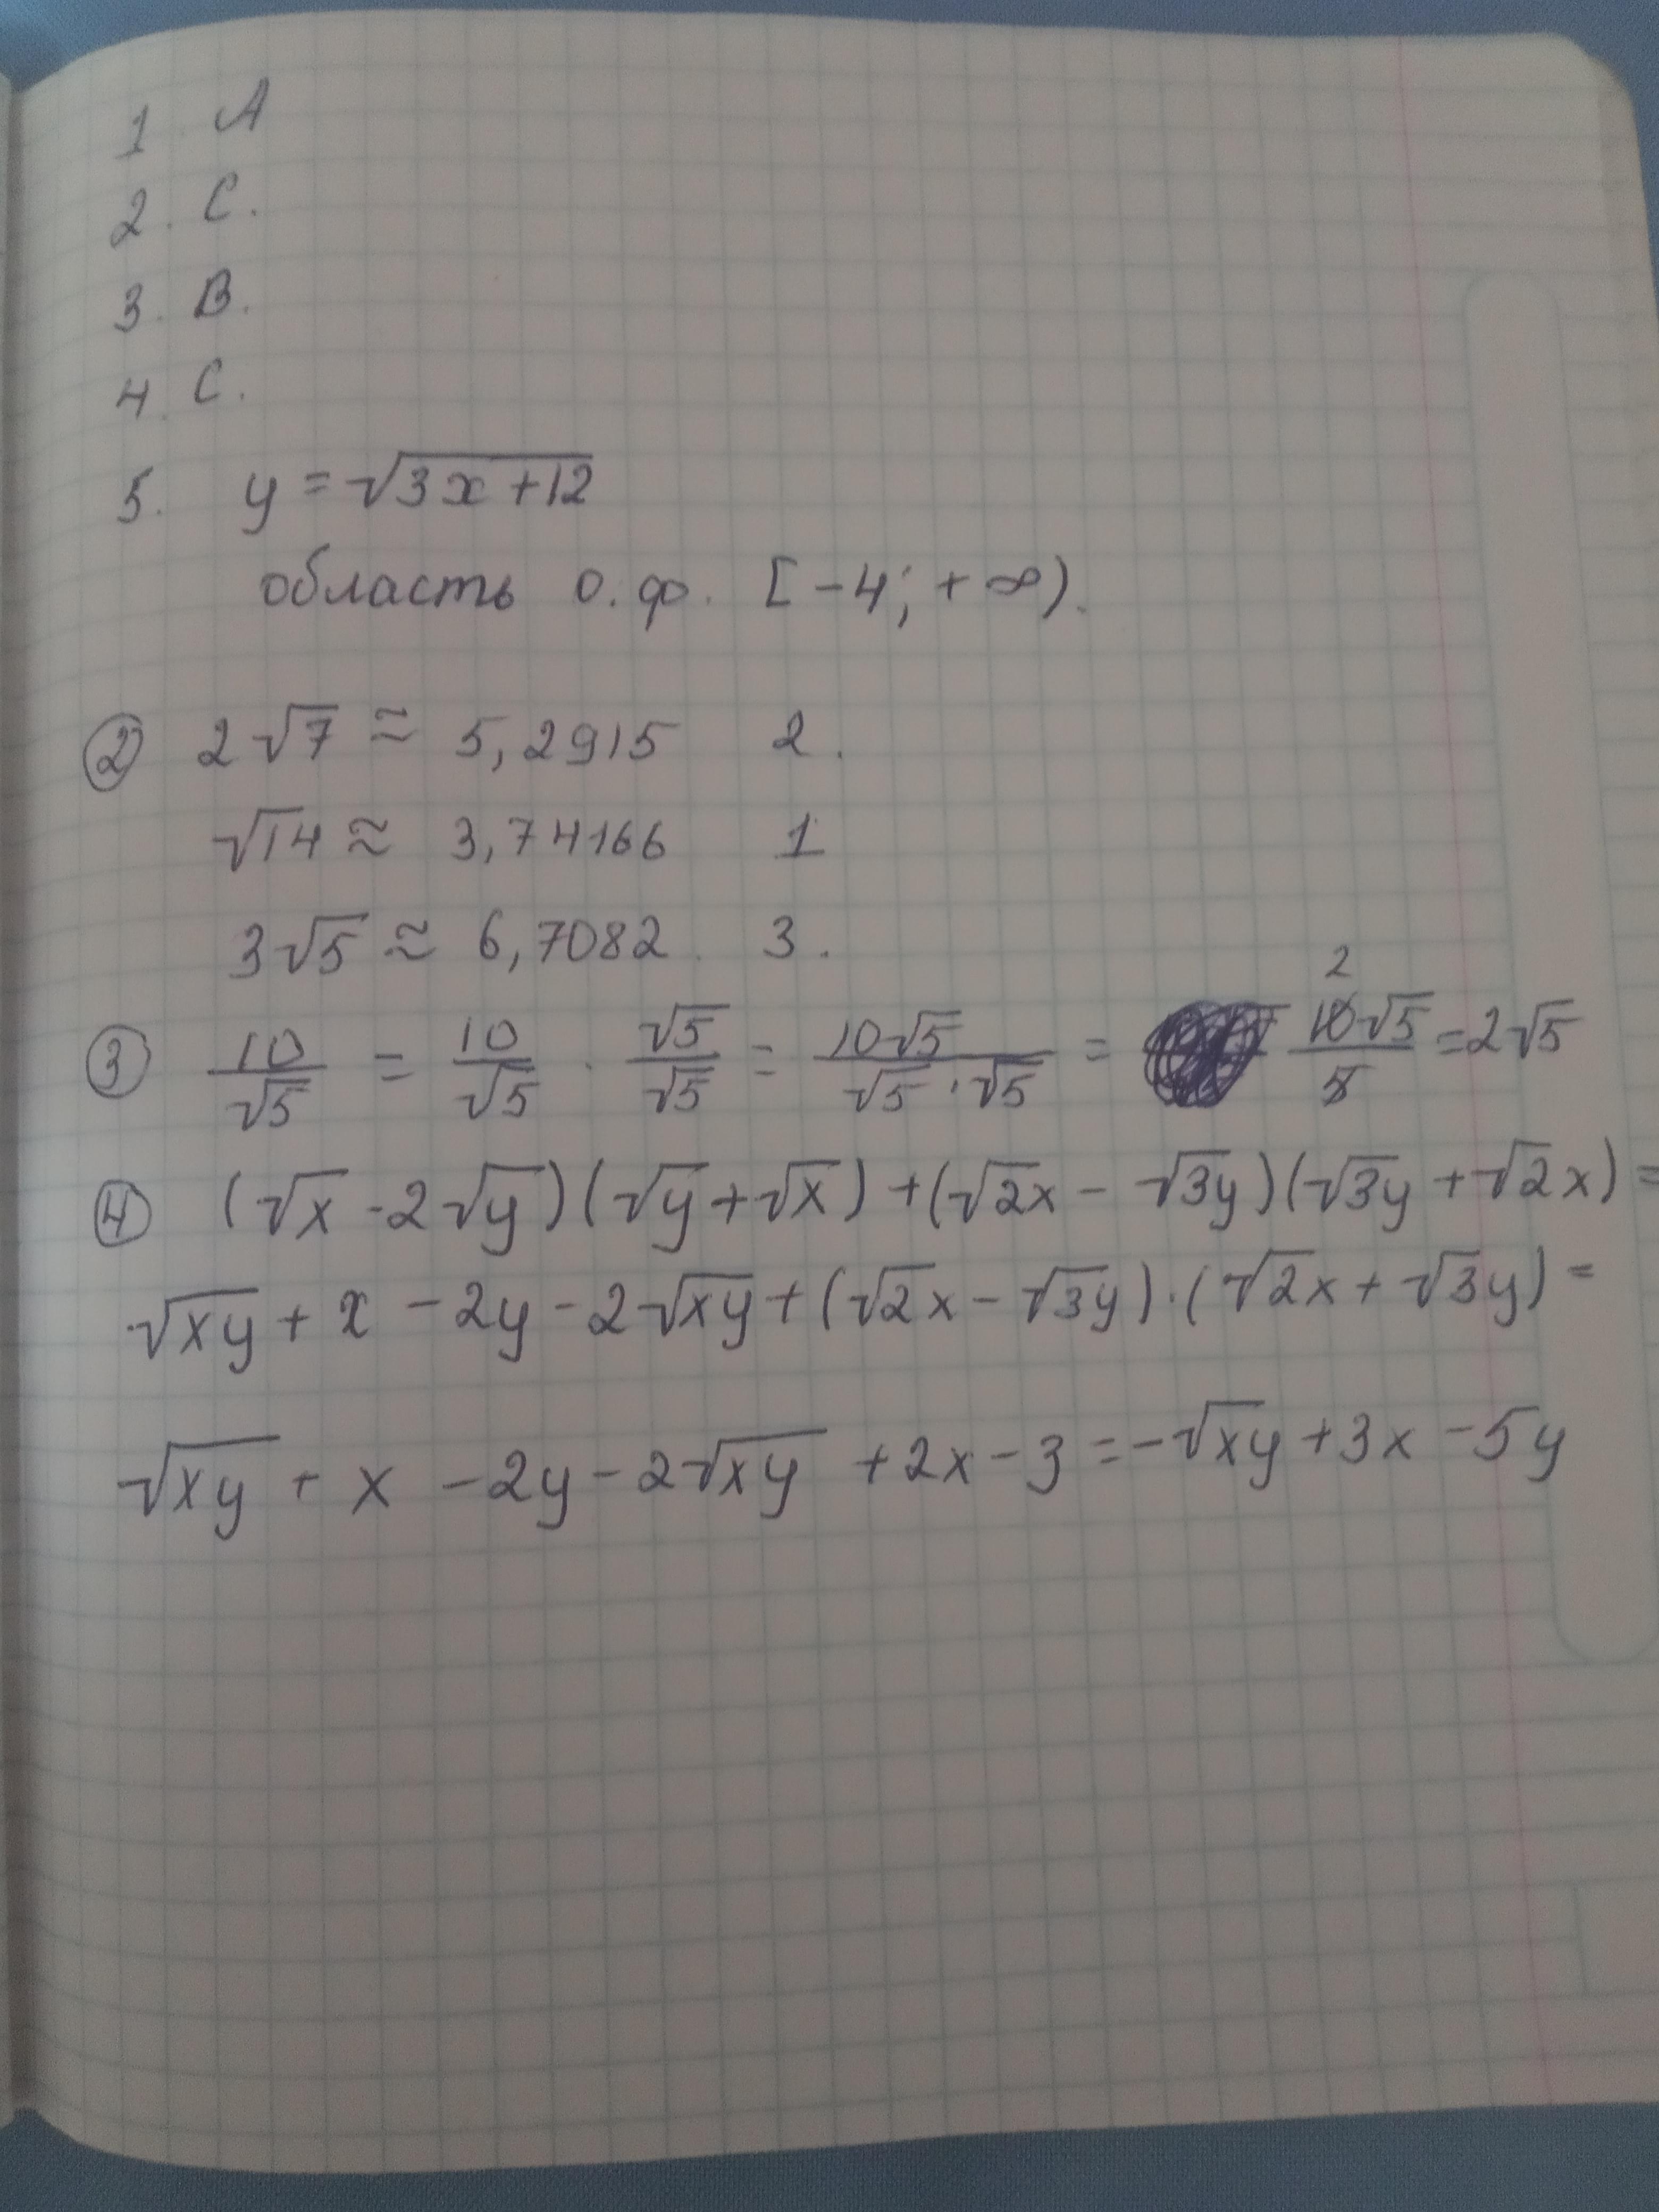 1. A
2. C.
3. B.
4. C.
5. y = √(3x + 12)
область о. ф. [-4; +∞).
② 2√7 ≈ 5,2915 2.
√14 ≈ 3,74166 1
3√5 ≈ 6,7082. 3.
③ 10/√5 = 10/√5 · √5/√5 = 10√5/(√5 · √5) = 10√5/5 = 2√5
2
④ (√x - 2√y)(√y + √x) + (√2x - √3y)(√3y + √2x) =
√xy + x - 2y - 2√xy + (√2x - √3y) · (√2x + √3y) =
√xy + x - 2y - 2√xy + 2x - 3 = -√xy + 3x - 5y